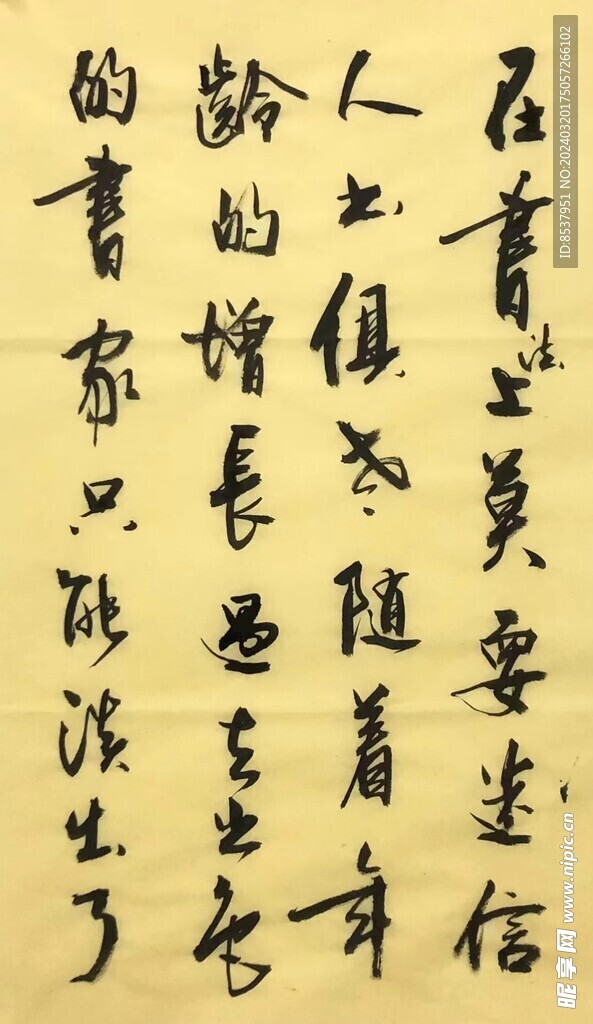 在書法上莫要迷信
人书俱老随着年
齡的增長過去出色
的書家只能淡出了
ID:8537951 NO:20240320175057266102
昵享网 www.nipic.cn